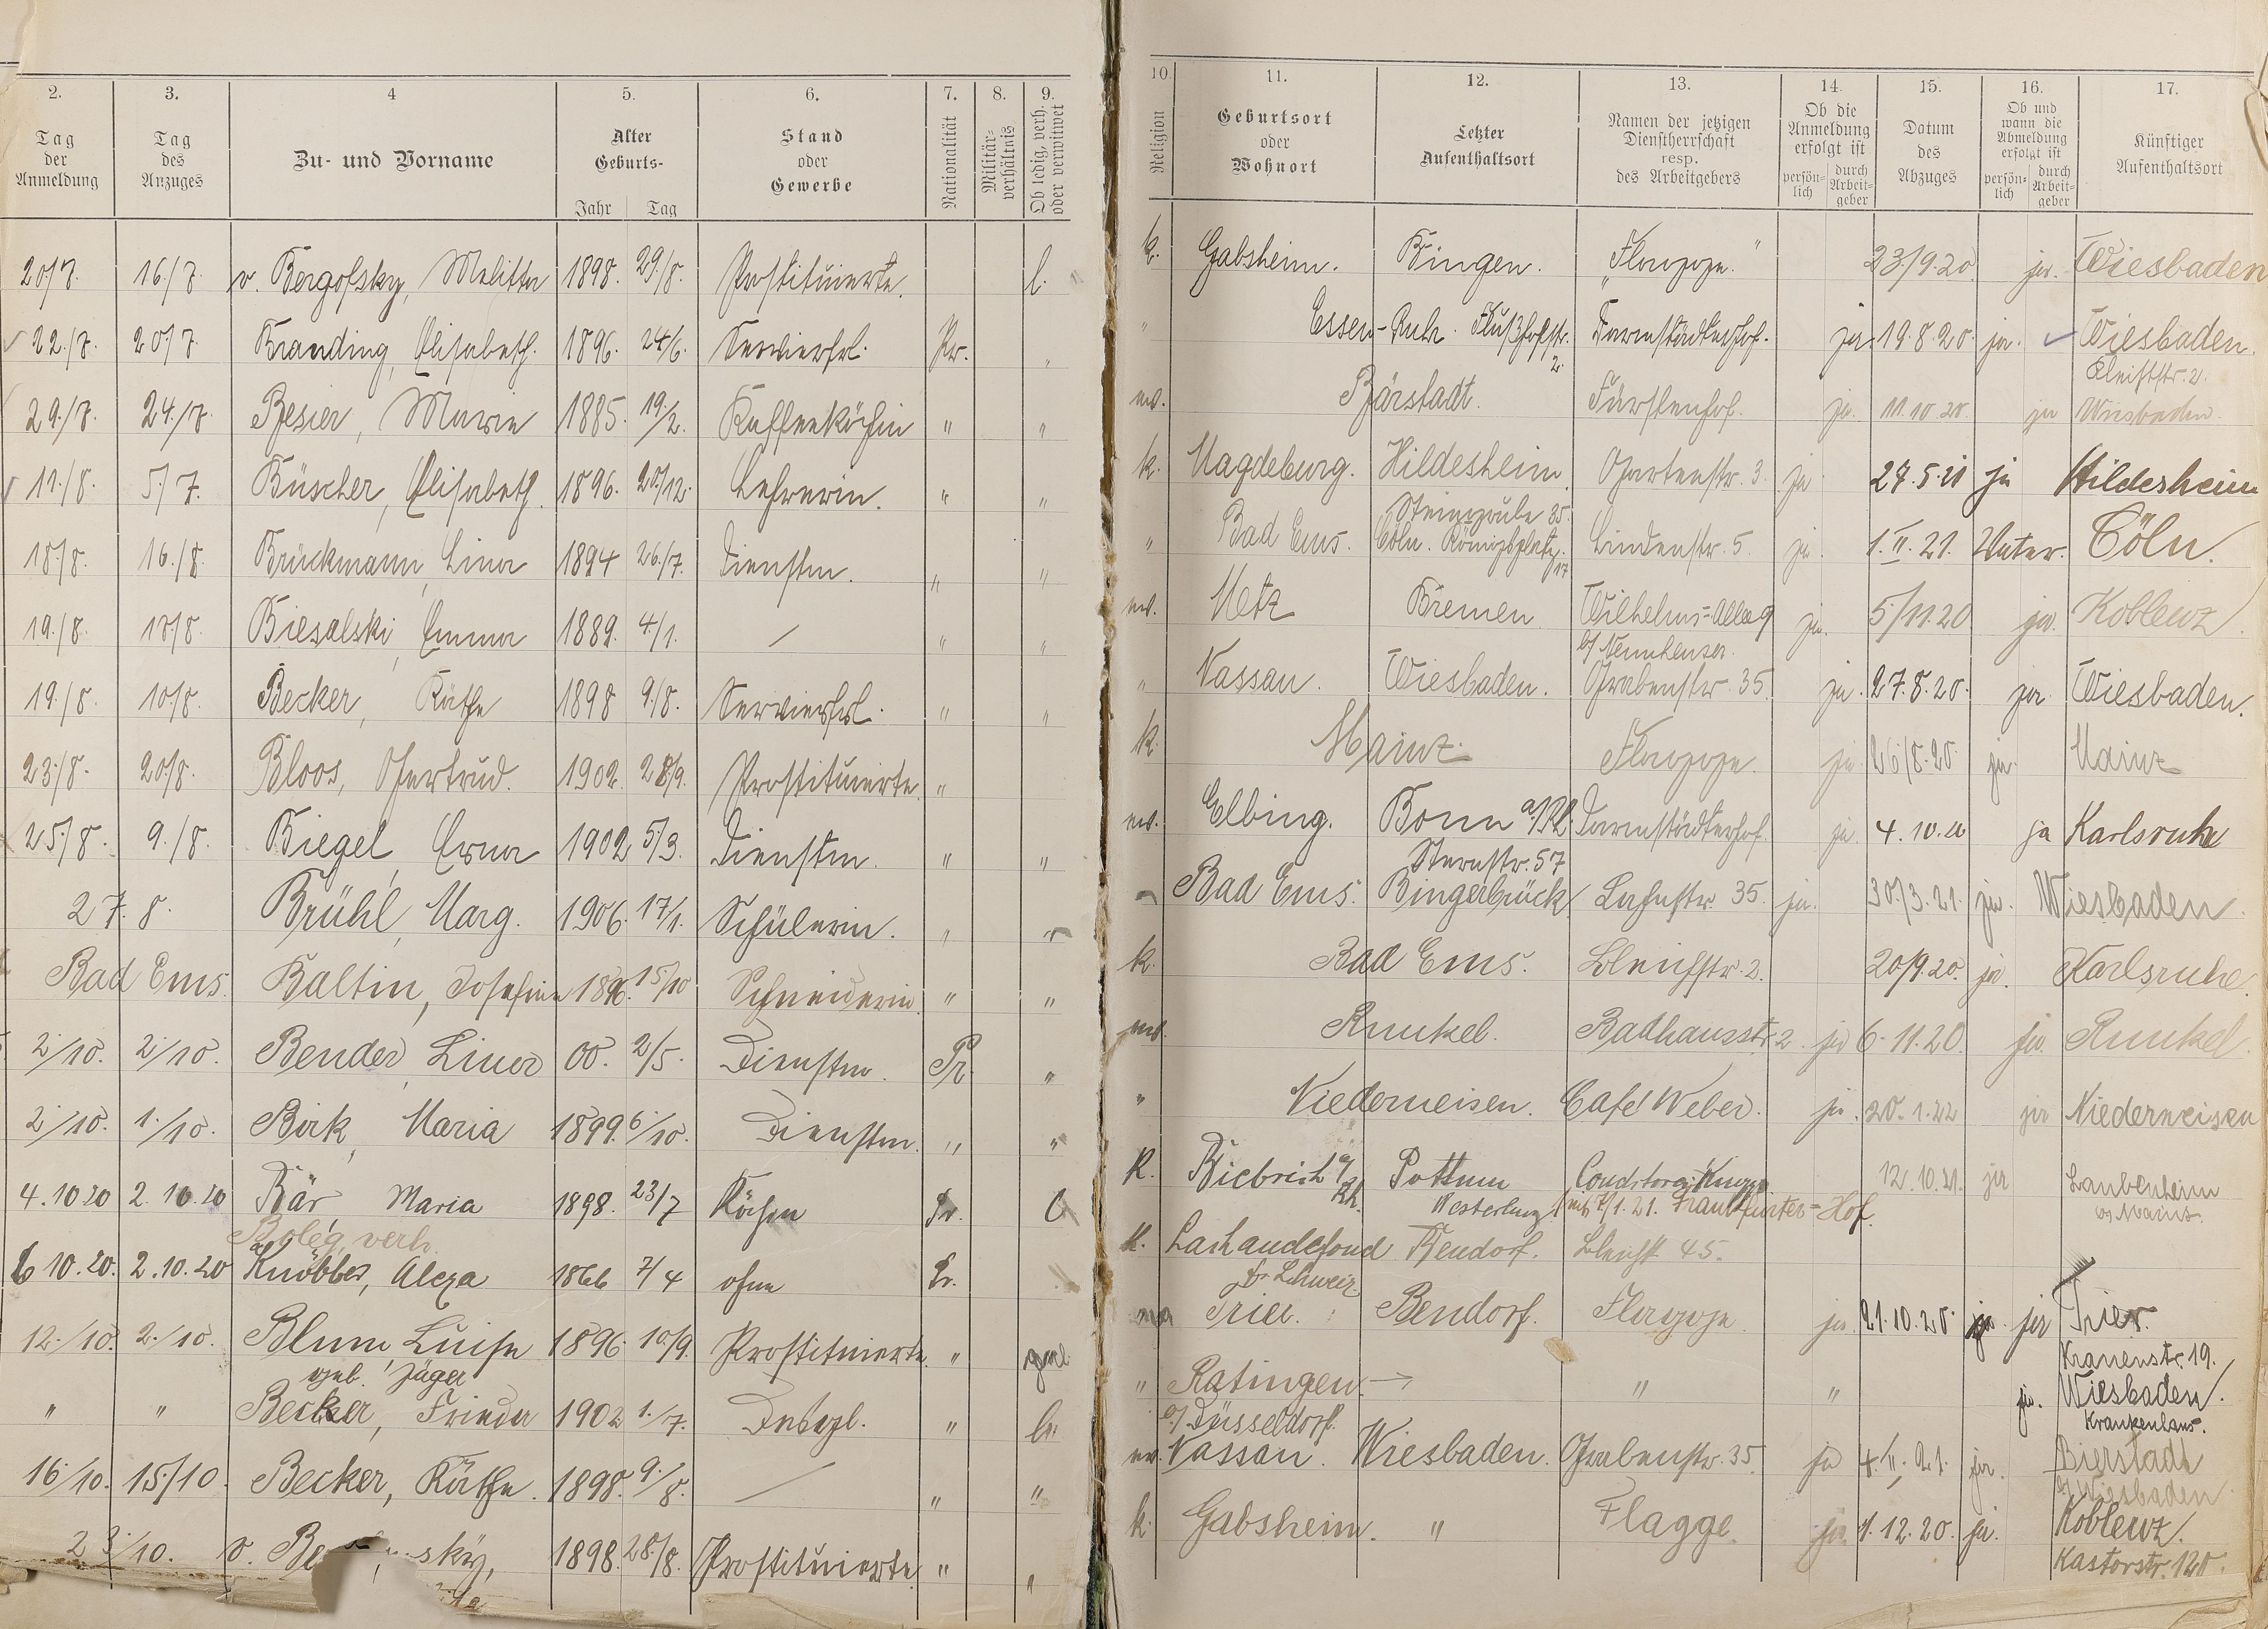 2. 3. 4 5. 6. 7. 8. 9. 10. 11. 12. 13. 14. 15. 16. 17.
Tag der Anmeldung
Tag des Anzuges
Zu- und Vorname
Alter Geburts- Jahr Tag
Stand oder Gewerbe
Nationalität
Militär-verhältnis
Ob ledig, verh. oder verwitwet
Religion
Geburtsort oder Wohnort
Letzter Aufenthaltsort
Namen der jetzigen Dienstherrschaft resp. des Arbeitgebers
Ob die Anmeldung erfolgt ist persön-lich durch Arbeit-geber
Datum des Abzuges
Ob und wann die Abmeldung erfolgt ist persön-lich durch Arbeit-geber
Künftiger Aufenthaltsort
20/7. 16./7. v. Bergofsky, Melitta 1898. 29./8. Prostituierte. l. k. Gabsheim. Bingen. "Flagge." 23./9.20. ja. Wiesbaden
22./7. 20/7. Branding, Elisabeth. 1896. 24/6. Servierfrl. Pr. " " Essen-Ruhr. Flußhofstr. 2. Darmstädterhof. ja. 19.8.20. ja. Wiesbaden. Kleiststr. 2.
29./7. 24./7. Besier, Marie 1885. 19./2. Kaffeeköchin " " ev. Bärstadt. Fürstenhof. ja. 11.10.20. ja Wiesbaden.
11./8. 5./7. Büscher, Elisabeth. 1896. 20/12. Lehrerin. " " k. Magdeburg. Hildesheim. Steingrube 35. Gartenstr. 3. ja 27.5.21 ja Hildesheim
18./8. 16./8. Brückmann, Lina 1894 26./7. Dienstm. " " " Bad Ems. Cöln. Königsplatz. 17 Lindenstr. 5. ja. 1.II.21. Unter. Cöln.
19./8. 17/8. Biesalski, Emma 1889. 4/1. / " " ev. Metz Bremen. Wilhelms-Allee 9 ja. 5/11.20 ja. Koblenz.
19./8. 10./8. Becker, Käthe 1898 9/8. Servierfrl. " " " Nassau. Wiesbaden. Grabenstr. 35. ja. 27.8.20. ja Wiesbaden.
23./8. 20./8. Bloos, Gertrud. 1902. 28/9. Prostituierte. " k. Mainz. Flagge. ja 26/8.20 ja. Mainz
25./8. 9./8. Biegel, Erna 1902 5/3. Dienstm. " " ev. Elbing. Bonn a/Rh. Sternstr. 57 Darmstädterhof. ja. 4.10.20 ja Karlsruhe
27.8. Brühl, Marg. 1906. 17/1. Schülerin. " " Bad Ems. Bingerbrück Lahnstr. 35. ja. 30./3.21. ja. Wiesbaden.
Bad Ems. Baltin, Josefine 1896. 15/10 Schneiderin. " " k. Bad Ems. Bleichstr. 2. 20/9.20. ja. Karlsruhe.
2./10. 2./10. Bender, Lina 00. 2/5. Dienstm. Pr. " ev. Runkel. Badhausstr. 2 ja 6.11.20. ja. Runkel.
2./10. 1./10. Birk, Maria 1899. 6/10. Dienstm. " " " Niederneisen. Café Weber. ja. 20.1.22 ja Niederneisen
4.10.20 2.10.20 Bär Maria 1898. 23/7 Köchin Pr. l k. Biebrich a/Rh. Pottum Westerburg. 12.10.21. ja Laubenheim b/ Mainz.
6.10.20. 2.10.20 Boleg, verh. Knöbber, Alexa 1866 7/4 ohne Pr. k. Bendorf. Bleichst. 45.
12./10. 2./10. Blum Luise geb. Jäger 1896 10/9. Prostituierte. " Trier. Bendorf. Flagge ja. 21.10.20. ja Trier. Kranenstr. 19.
" " Becker, Frieda 1902 1./7. Desgl. " " Ratingen. b/ Düsseldorf. " " ja. Wiesbaden. Krankenhaus.
16/10. 15./10. Becker, Käthe. 1898. 9./8. / " " ev. Nassau. Wiesbaden. Grabenstr. 35. ja 4./II.21. ja. Bierstadt b/ Wiesbaden.
23./10. v. Be sky, 1898. 28./8. Prostituierte. " " k. Gabsheim. " Flagge. ja. 1.12.20. ja. Koblenz. Kastorstr. 120.